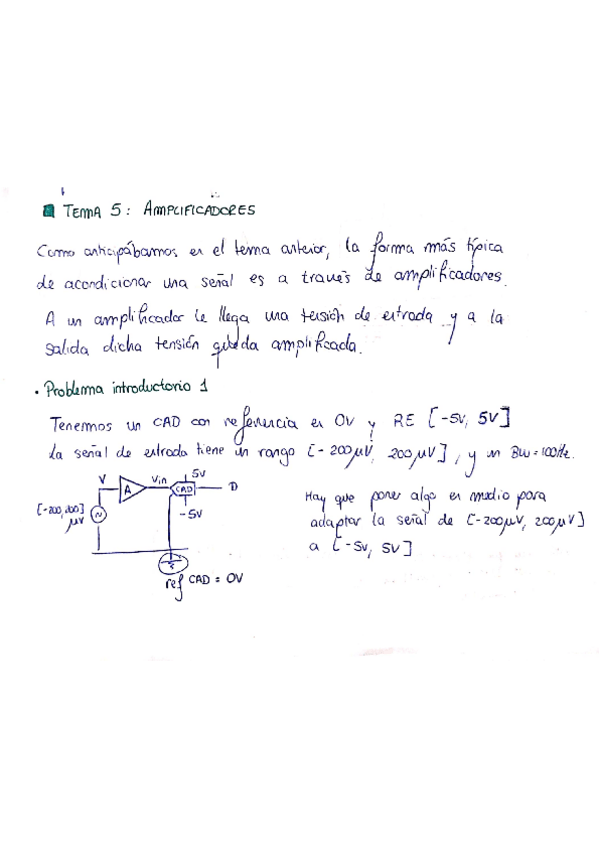 TEMA 5: AMPLIFICADORES
Como anticipábamos en el tema anterior, la forma más típica
de acondicionar una señal es a través de amplificadores.
A un amplificador le llega una tensión de entrada y a la
salida dicha tensión queda amplificada.
. Problema introductorio 1
Tenemos un CAD con referencia en 0V y RE [-5V, 5V]
La señal de entrada tiene un rango [-200μV, 200μV], y un BW=100Hz.
V
A
Vin
5V
CAD
D
-5V
[-200,200]
μV
~
ref CAD = 0V
Hay que poner algo en medio para
adaptar la señal de [-200μV, 200μV]
a [-5V, 5V]